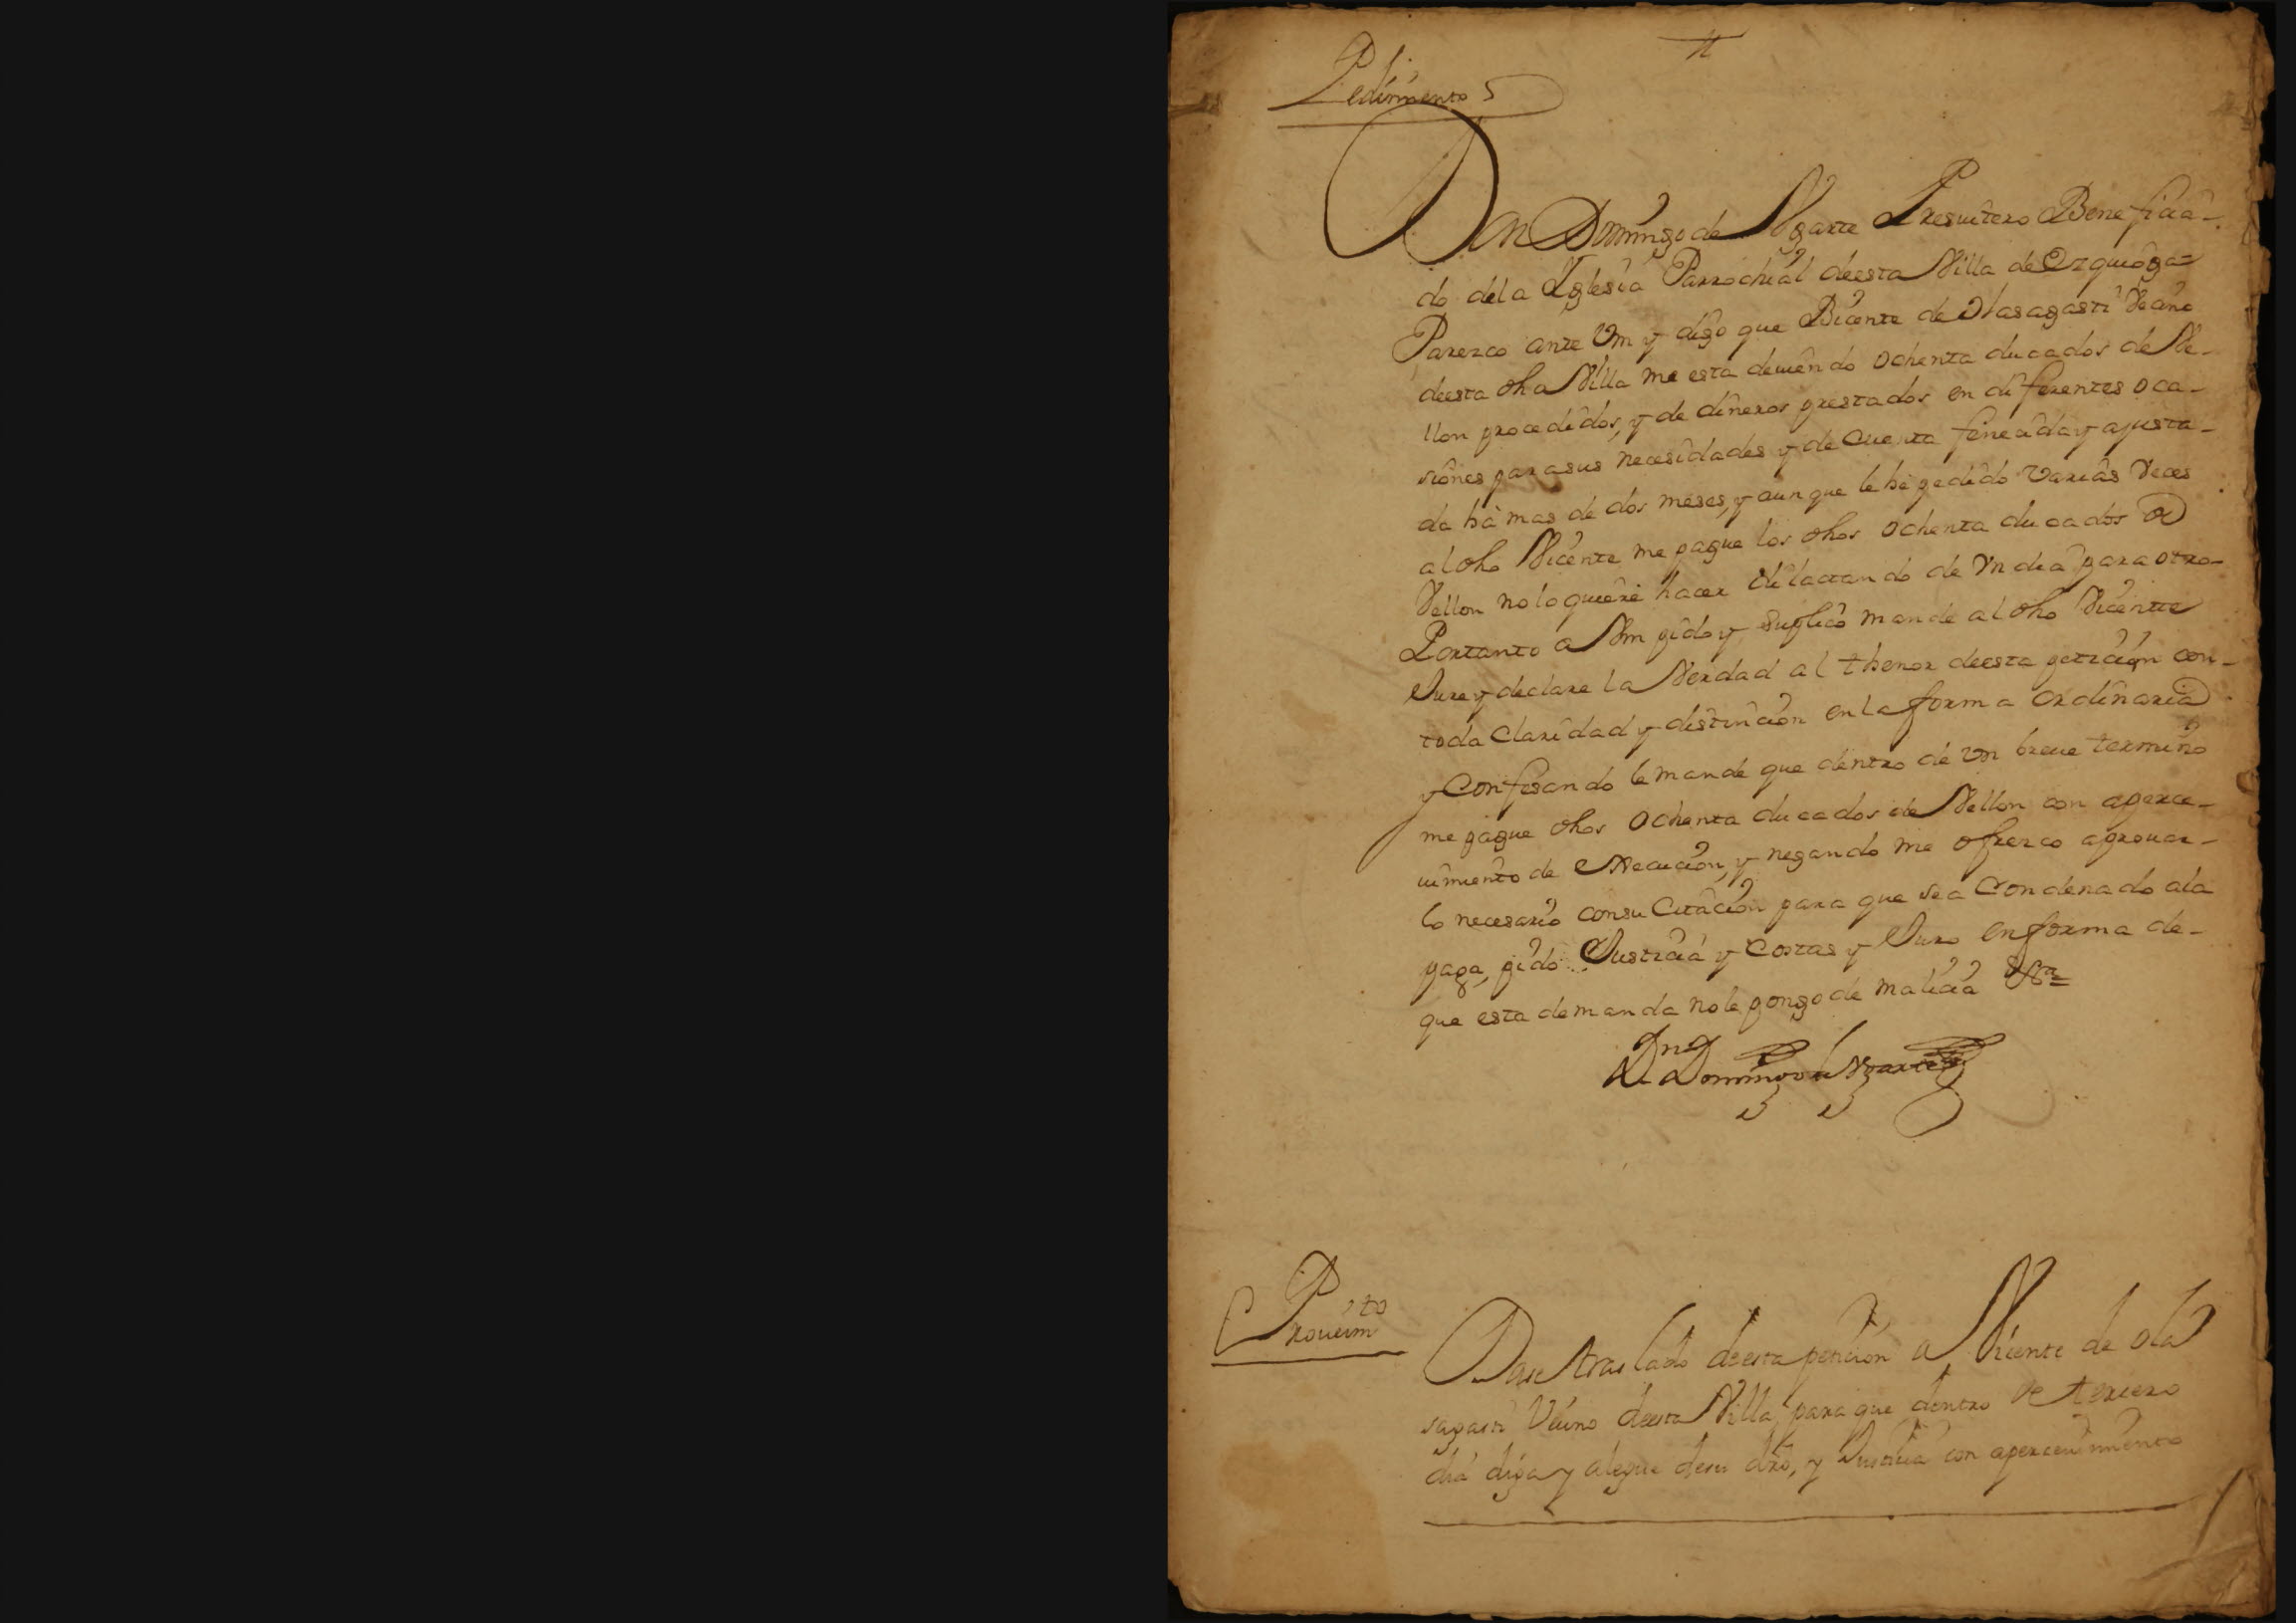 Pedimento
Don Domingo de Vgarte Presuitero Beneficia-
do dela Iglesia Parrochial deesta Villa de Ezquioga
Parezco ante Vm y digo que Bicente de Olasagasti Vecino
deesta dha Villa me esta deuiendo ochenta ducados de Ve-
llon procedidos, y de dineros prestados en diferentes oca-
siones para sus necesidades y de Cuenta fenecida y ajusta-
da hà mas de dos meses, y aunque le he pedido Varias Veces
al dho Vicente me pague los dhos ochenta ducados de
Vellon no lo quiere hacer dilactando de Vn dia para otro-
Portanto a Vm pido y suplico mande al dho Vicente
Jure y declare la Verdad al thenor deesta peticion con-
toda Claridad y distincion en la forma ordinaria
y Confesando le mande que dentro de Vn breue termino
me pague dhos ochenta ducados de Vellon con aperce-
uimiento de execucion, y negando me ofrezco aprouar-
lo necesario consu Citacion para que sea Condenado ala
paga, pido Justicia y Costas y Juro en forma de-
que esta demanda nole pongo de malicia &ra=
Dn Domingo de Vgarte
Proueimto
Dase traslado deesta peticion a Vicente de ola
sagasti Vecino deesta Villa, para que dentro de tercero
dia diga y alegue desu dro, y Justicia con aperceuimiento